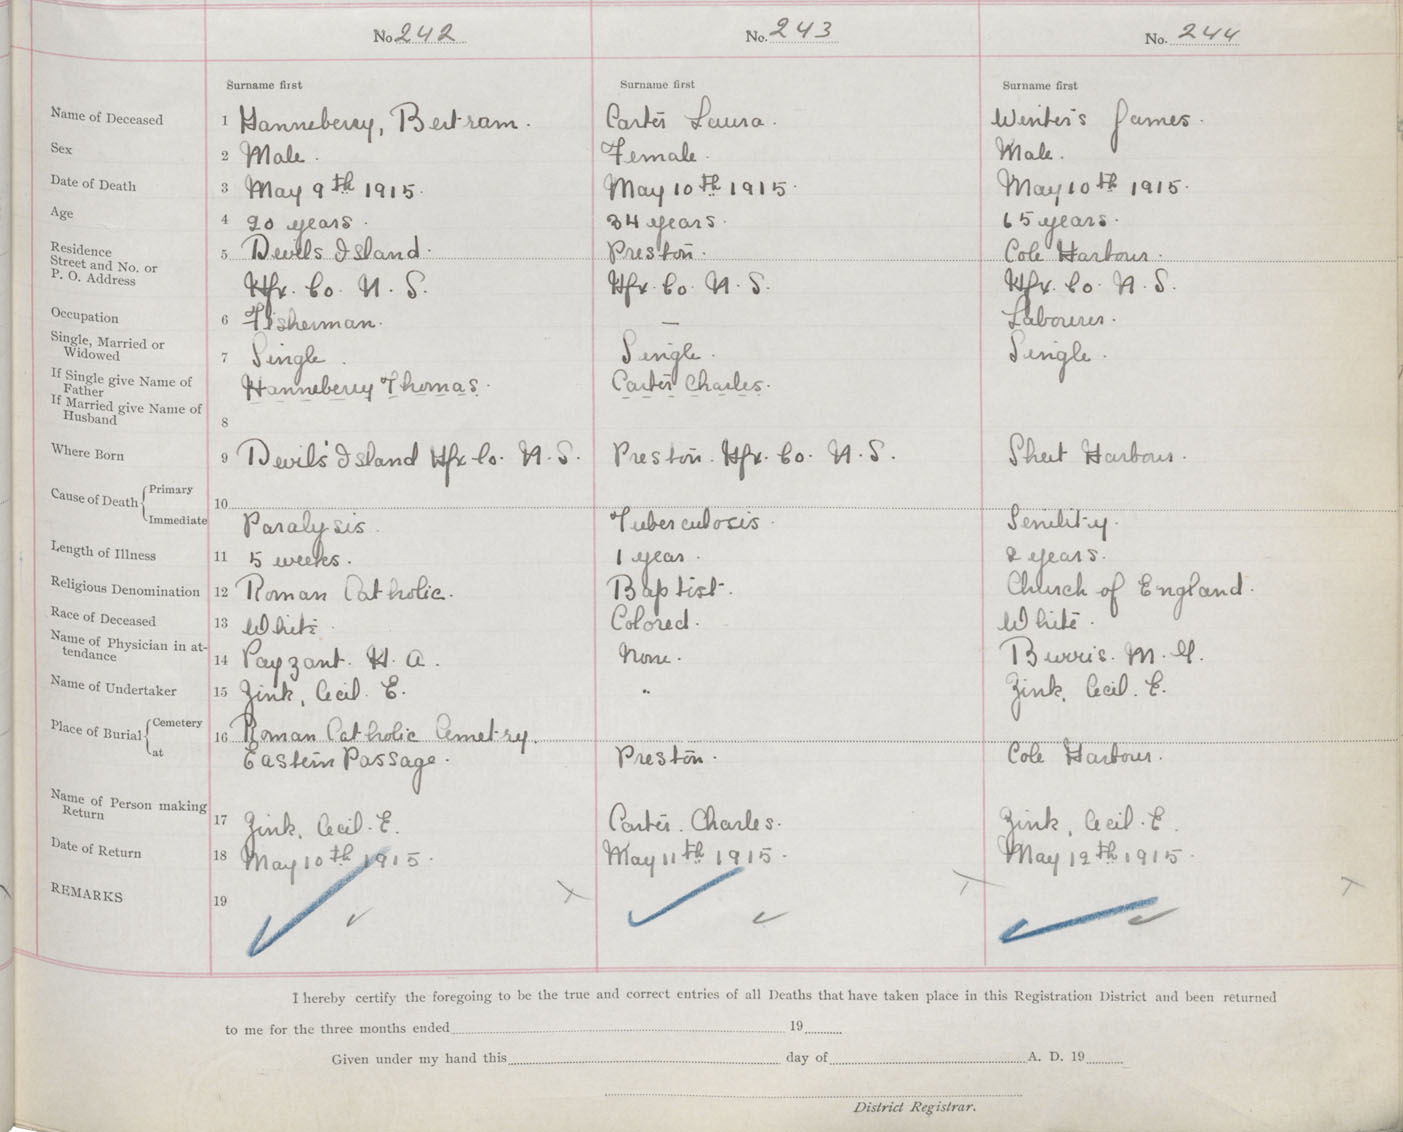 No. 242 No. 243 No. 244
Surname first Surname first Surname first
Name of Deceased 1 Hanneberry, Bertram. Carter Laura. Winters James.
Sex 2 Male. Female. Male.
Date of Death 3 May 9th 1915. May 10th 1915. May 10th 1915.
Age 4 20 years. 34 years. 65 years.
Residence
Street and No. or 5 Devils Island. Preston. Cole Harbour.
P. O. Address Hfx. Co. N. S. Hfx. Co. N. S. Hfx. Co. N. S.
Occupation 6 Fisherman. — Labourer.
Single, Married or
Widowed 7 Single. Single. Single.
If Single give Name of
Father Hanneberry Thomas. Carter Charles.
If Married give Name of
Husband 8
Where Born 9 Devil's Island Hfx Co. N. S. Preston. Hfx. Co. N. S. Sheet Harbour.
Cause of Death Primary 10
Immediate Paralysis. Tuberculosis. Senility.
Length of Illness 11 5 weeks. 1 year. 2 years.
Religious Denomination 12 Roman Catholic. Baptist. Church of England.
Race of Deceased 13 White. Colored. White.
Name of Physician in at-
tendance 14 Payzant. H. A. None. Burris. M. G.
Name of Undertaker 15 Zink, Cecil. E. " Zink, Cecil. E.
Place of Burial Cemetery 16 Roman Catholic Cemetry.
at Eastern Passage. Preston. Cole Harbour.
Name of Person making
Return 17 Zink, Cecil. E. Carter. Charles. Zink, Cecil. E.
Date of Return 18 May 10th 1915. May 11th 1915. May 12th 1915.
REMARKS 19
I hereby certify the foregoing to be the true and correct entries of all Deaths that have taken place in this Registration District and been returned
to me for the three months ended 19
Given under my hand this day of A. D. 19
District Registrar.